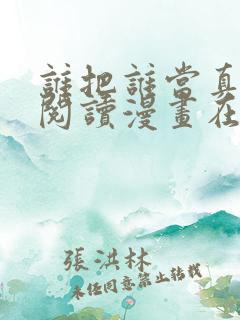 誰把誰當真
閱讀漫畫在
張洪林
未经同意禁止转载